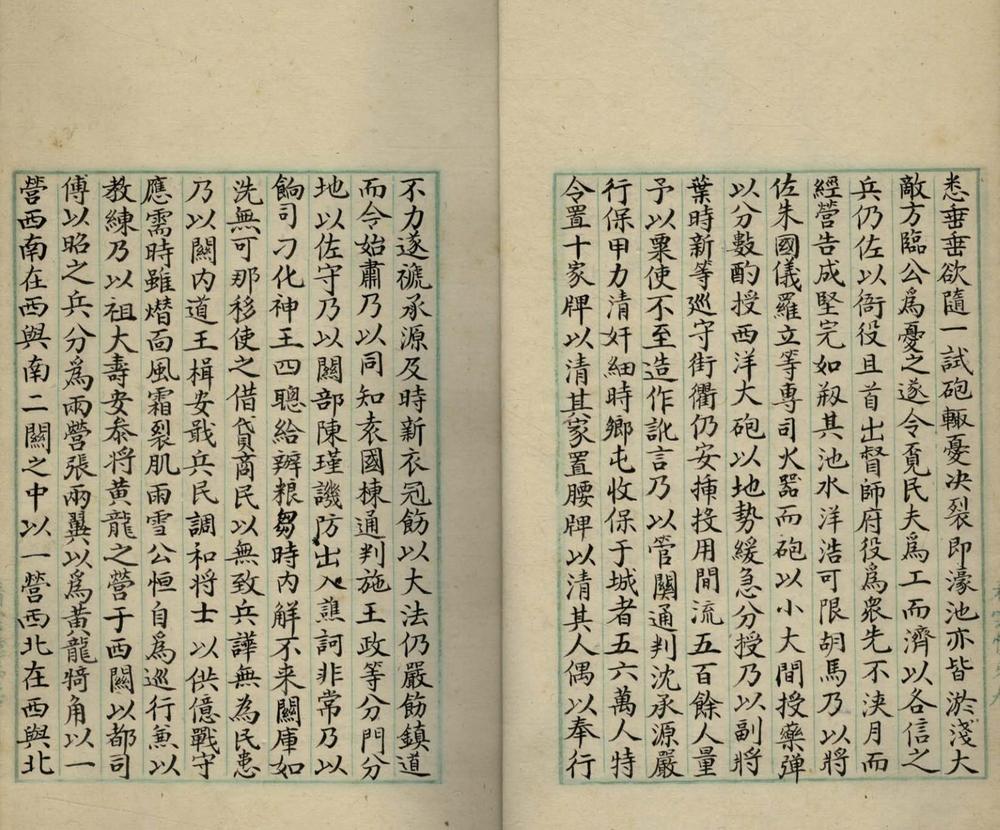 悉垂垂欲隨一試砲輒憂决裂即濠池亦皆淤淺大
敵方臨公爲憂之遂令竟民夫爲工而濟以各信之
兵仍佐以衙役且首出督師府役爲衆先不浹月而
經營告成堅完如韌其池水洋浩可限胡馬乃以將
佐朱國儀羅立等專司火器而砲以小大間授藥彈
以分數酌授西洋大砲以地勢緩急分授乃以副將
葉時新等廵守街衢仍安揷投用間流五百餘人量
予以粟使不至造作訛言乃以管關通判沈承源嚴
行保甲力清奸細時鄉屯收保于城者五六萬人特
令置十家牌以清其家置腰牌以清其人偶以奉行
不力遂褫承源及時新衣冠飭以大法仍嚴飭鎮道
而令始肅乃以同知袁國棟通判施王政等分門分
地以佐守乃以關部陳瑾譏防出入譙訶非常乃以
餉司刁化神王四聰給辦粮芻時内解不来關庫如
洗無可那移使之借貸商民以無致兵譁無為民患
乃以關内道王楫安戢兵民調和將士以供億戰守
應需時雖熸而風霜裂肌雨雪公恒自爲廵行兼以
教練乃以祖大壽安叅将黄龍之營于西關以都司
傅以昭之兵分爲兩營張兩翼以爲黄龍犄角以一
營西南在西與南二關之中以一營西北在西與北